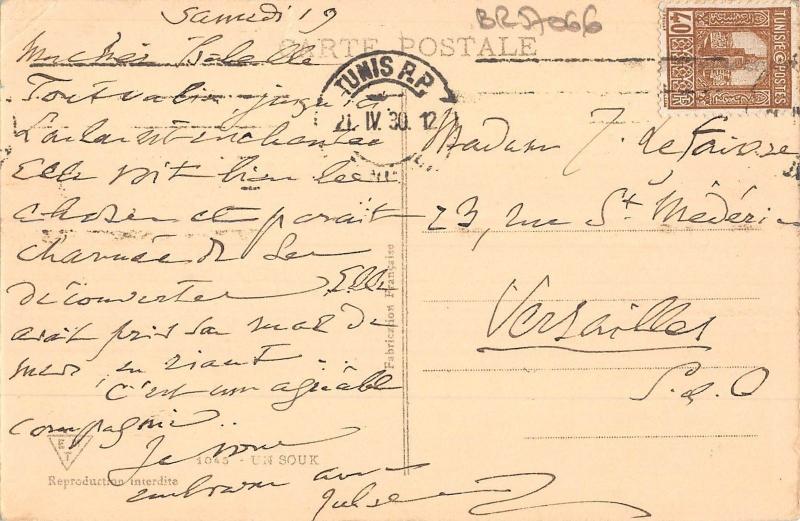 Samedi 19
BRS7066
CARTE POSTALE
40
TUNISIE POSTES
TUNIS R.P.
21 IV. 30. 12
Tout va bien jusqu'ici
est enchantée
Elle voit bien les
choses et paraît
charmée de ses
découvertes. Elle
avait pris son mal de
mer en riant...
C'est une agréable
compagnie..
Je vous
embrasse
Madame J. Le Faivre
23, rue St Médéric
Versailles
S. & O
Fabrication Française
E T
1045 - UN SOUK
Reproduction interdite